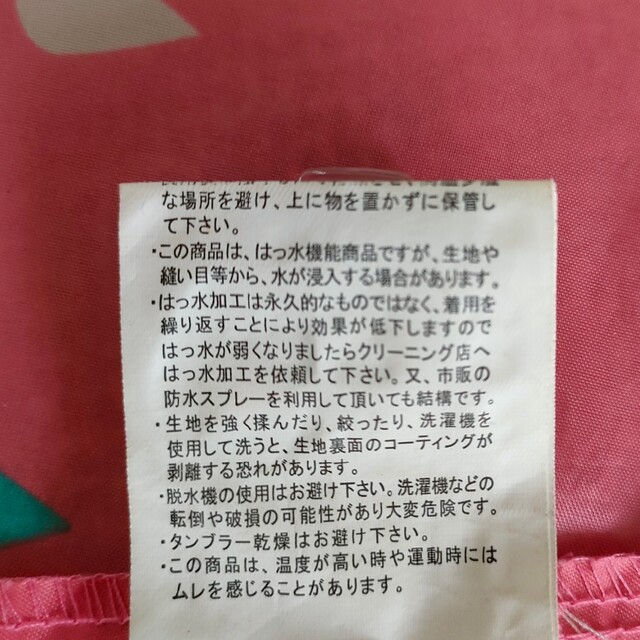 な場所を避け、上に物を置かずに保管し
て下さい。
・この商品は、はっ水機能商品ですが、生地や
縫い目等から、水が浸入する場合があります。
・はっ水加工は永久的なものではなく、着用を
繰り返すことにより効果が低下しますので
はっ水が弱くなりましたらクリーニング店へ
はっ水加工を依頼して下さい。又、市販の
防水スプレーを利用して頂いても結構です。
・生地を強く揉んだり、絞ったり、洗濯機を
使用して洗うと、生地裏面のコーティングが
剥離する恐れがあります。
・脱水機の使用はお避け下さい。洗濯機などの
転倒や破損の可能性があり大変危険です。
・タンブラー乾燥はお避け下さい。
・この商品は、温度が高い時や運動時には
ムレを感じることがあります。